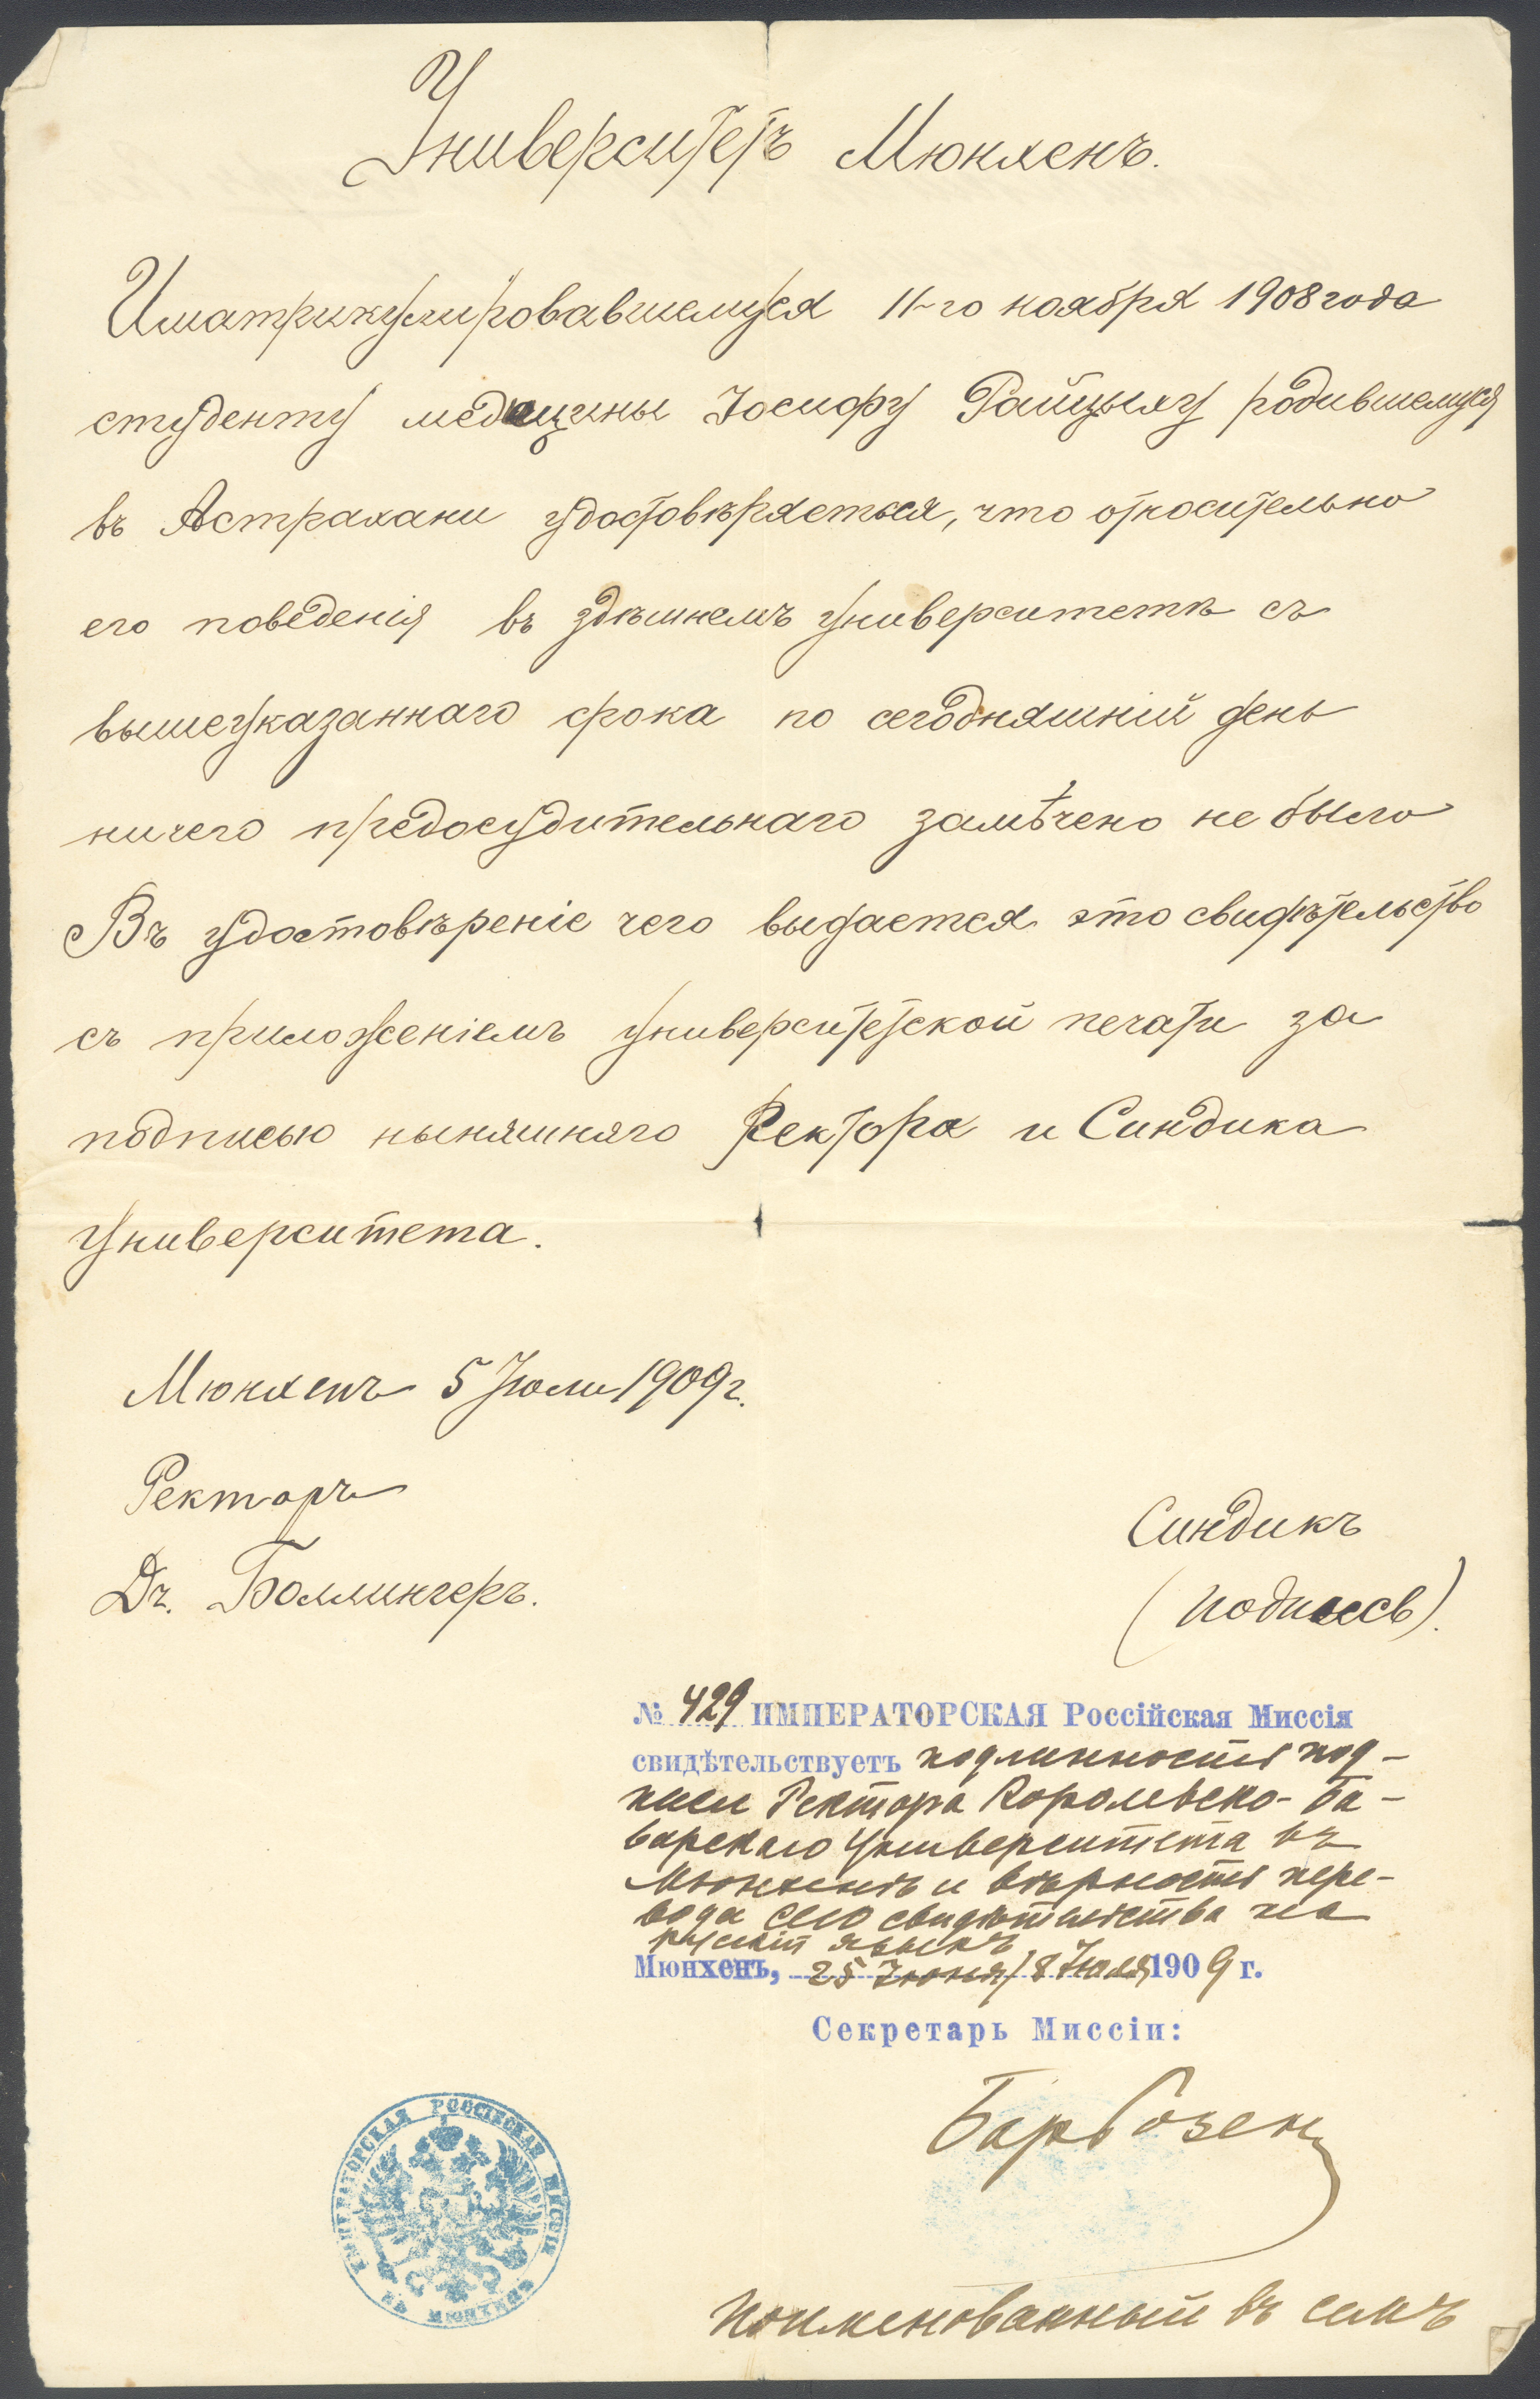 Университетъ Мюнхенъ.
Иматрикулировавшемуся 11-го ноября 1908 года
студенту медицины Іосифу Райцыху родившемуся
въ Астрахани удостовѣряеться, что относительно
его поведенія въ здѣшнемъ университетѣ съ
вышеуказаннаго срока по сегодняшній день
ничего предосудительнаго замѣчено не было
Въ удостовѣреніе чего выдается это свидѣтельство
съ приложеніемъ университетской печати за
подписью ныняшняго Ректора и Синдика
университета.
Мюнхенъ 5 Іюли 1909 г.
Ректоръ
Синдикъ
Dr. Боллингеръ.
(подпись).
№ 429 ИМПЕРАТОРСКАЯ Россійская Миссія
свидѣтельствуетъ подлинность под-
писи Ректора Королевско-Ба-
варскаго Университета въ
Мюнхенѣ и вѣрность пере-
вода сего свидѣтельства на
русскій языкъ
Мюнхенъ, 25 Іюня/8 Іюля 1909 г.
Секретарь Миссіи:
Бар Розен
ИМПЕРАТОРСКАЯ РОССІЙСКАЯ МИССІЯ ВЪ МЮНХЕНѢ
Поименованный въ семъ